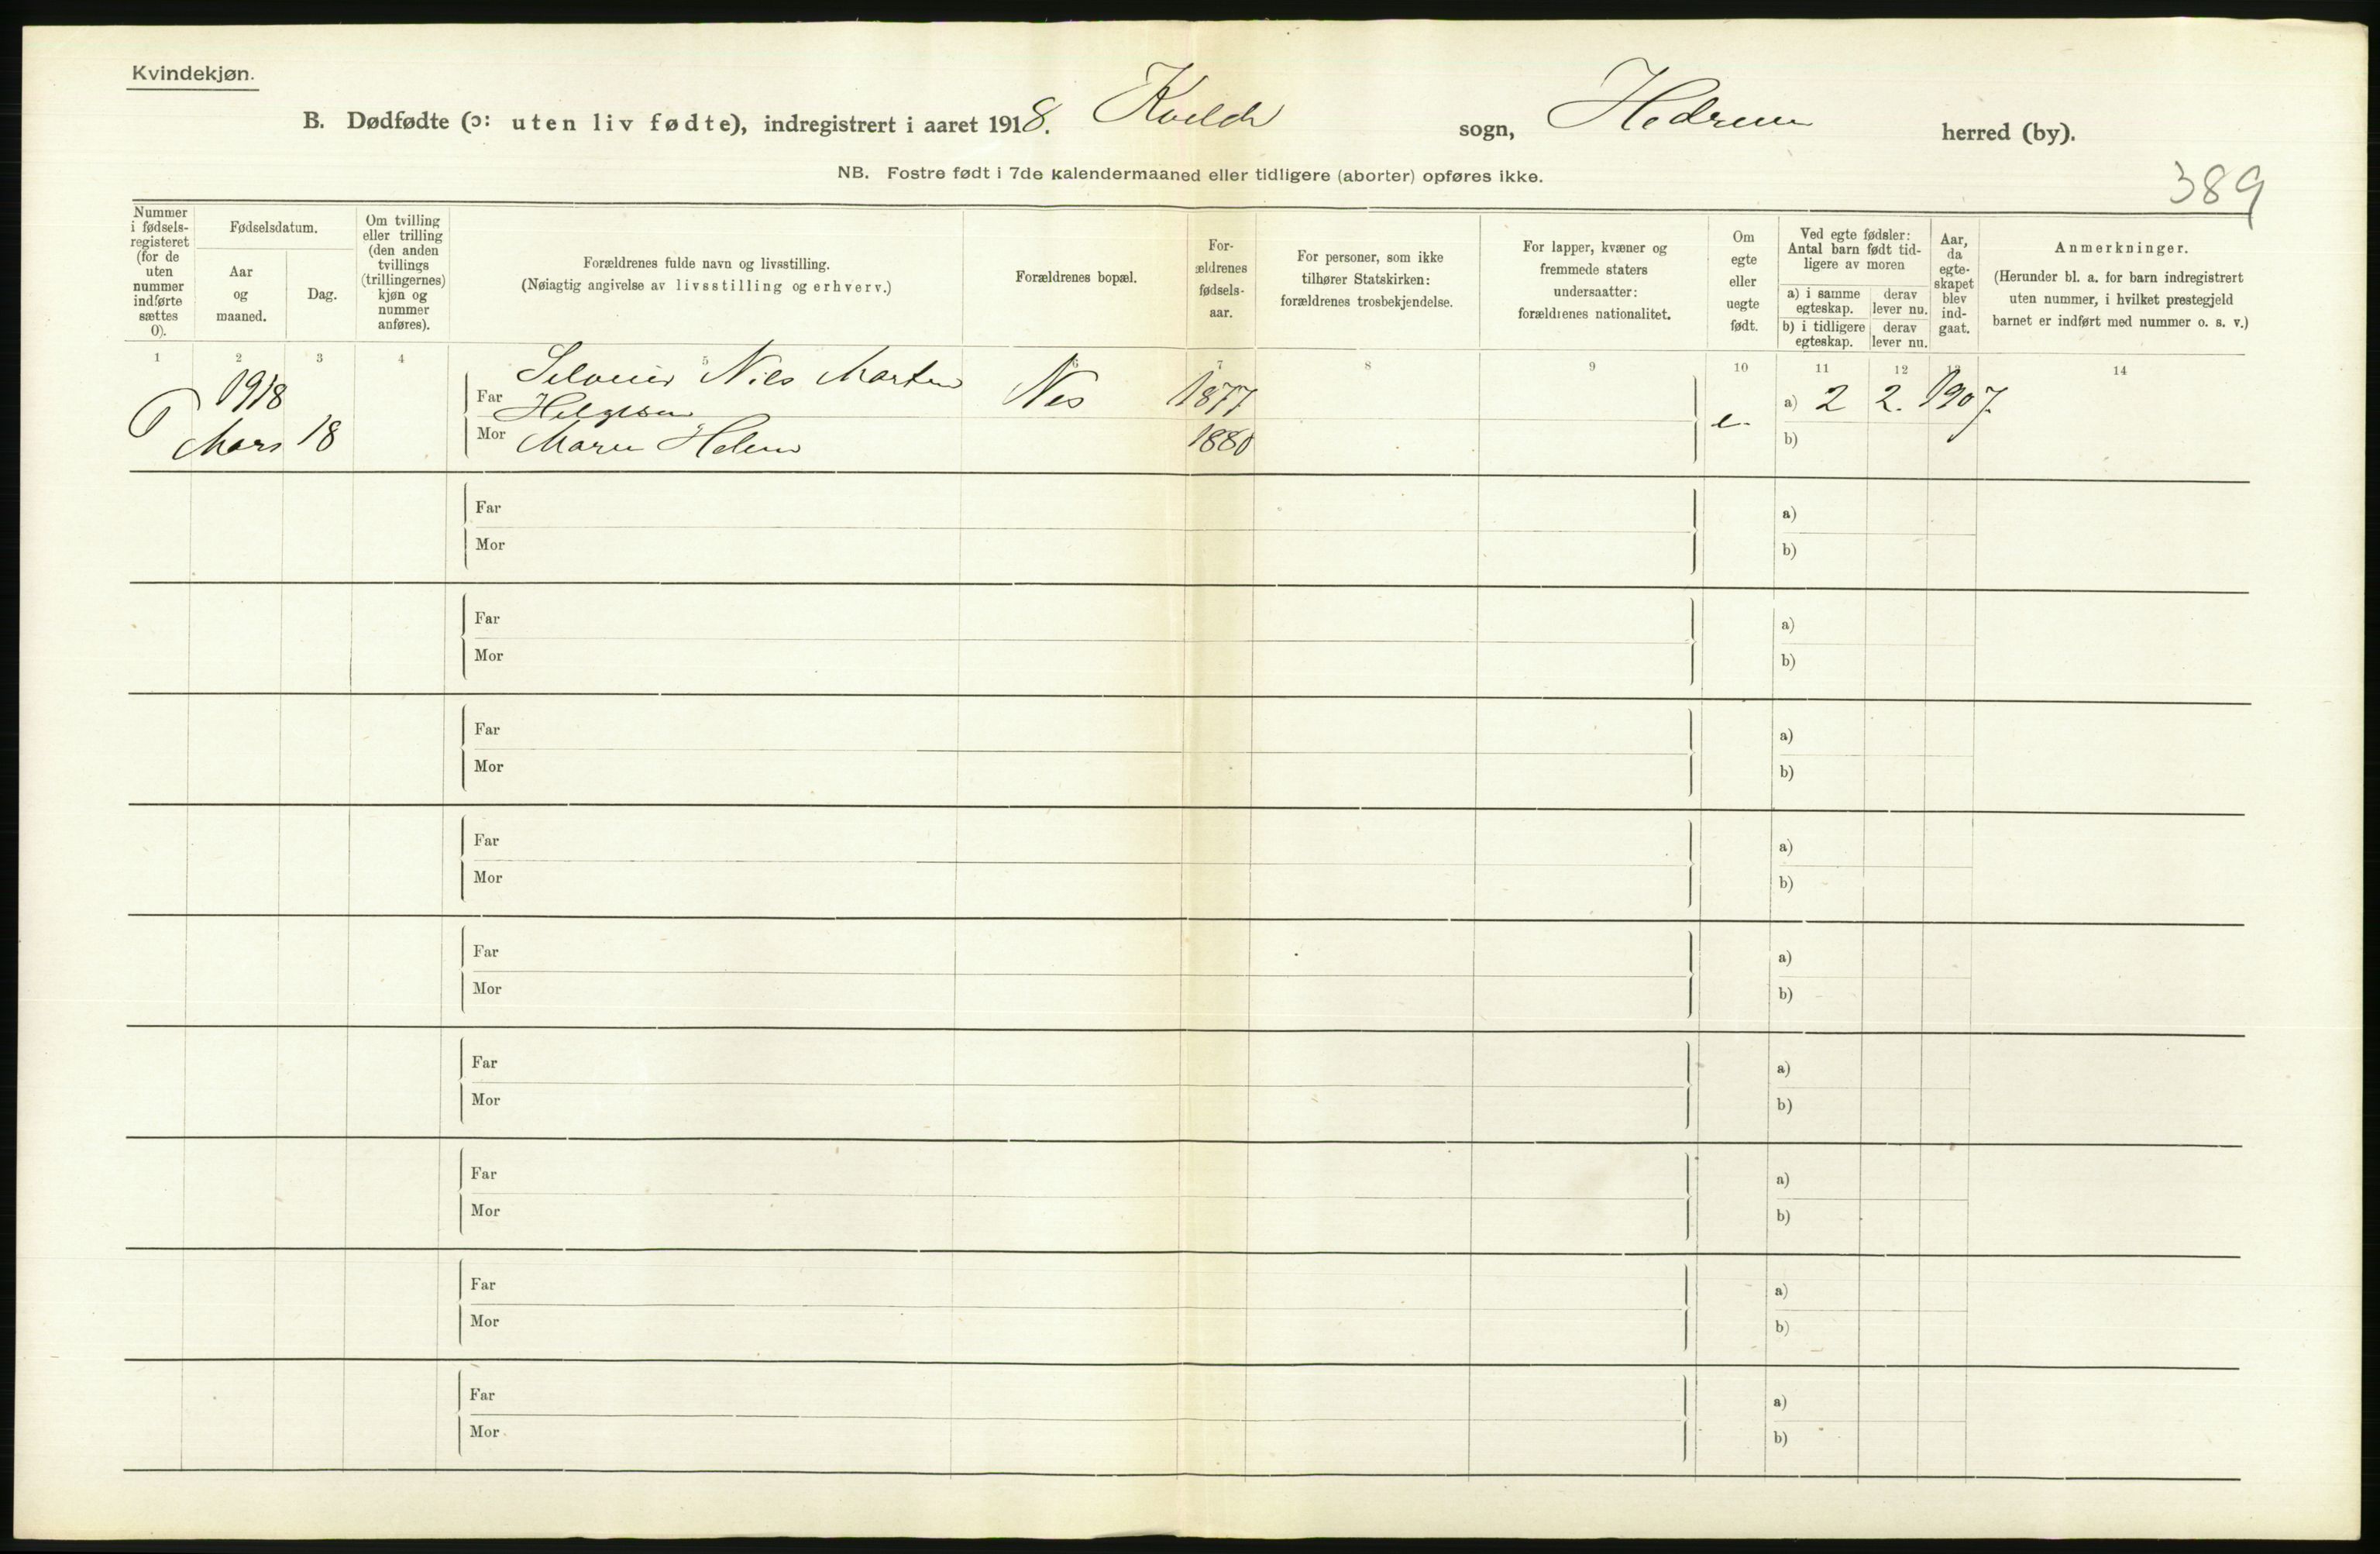 Kvindekjøn.
B. Dødfødte (ɔ: uten liv fødte), indregistrert i aaret 1918. sogn, Hedrum herred (by).
NB. Fostre født i 7de kalendermaaned eller tidligere (aborter) opføres ikke.
389
Nummer i fødsels-registeret (for de uten nummer indførte sættes 0).
Fødselsdatum.
Aar og maaned.
Dag.
Om tvilling eller trilling (den anden tvillings (trillingernes) kjøn og nummer anføres).
Forældrenes fulde navn og livsstilling.
(Nøiagtig angivelse av livsstilling og erhverv.)
Forældrenes bopæl.
For-ældrenes fødsels-aar.
For personer, som ikke tilhører Statskirken: forældrenes trosbekjendelse.
For lapper, kvæner og fremmede staters undersaatter: forældrenes nationalitet.
Om egte eller uegte født.
Ved egte fødsler: Antal barn født tid-ligere av moren
a) i samme egteskap.
derav lever nu.
b) i tidligere egteskap.
derav lever nu.
Aar, da egte-skapet blev ind-gaat.
Anmerkninger.
(Herunder bl. a. for barn indregistrert uten nummer, i hvilket prestegjeld barnet er indført med nummer o. s. v.)
1 2 3 4 5 7 8 9 10 11 12 13 14
1918 Far Niels Martin Nes 1877 e. a) 2 2. 1907.
Helgesen
Mars 18 Mor Maren Helene 1880 b)
Far a)
Mor b)
Far a)
Mor b)
Far a)
Mor b)
Far a)
Mor b)
Far a)
Mor b)
Far a)
Mor b)
Far a)
Mor b)
Far a)
Mor b)
Far a)
Mor b)